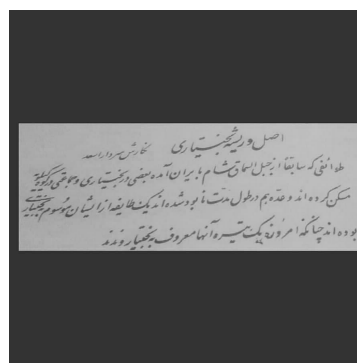 اصل و ریشهٔ بختیاری نگارش سردار اسعد
طوائفی که سابقاً از جبل السماق شام بایران آمده بعضی در بختیاری و جماعتی در کوه‌کیلویه
مسکن کرده‌اند و عدّه هم در طول مدّت نابود شده‌اند یک طایفه از ایشان موسوم به بختیاری
بوده‌اند چنانکه امروزه یک تیره آنها معروف به بختیاروندند